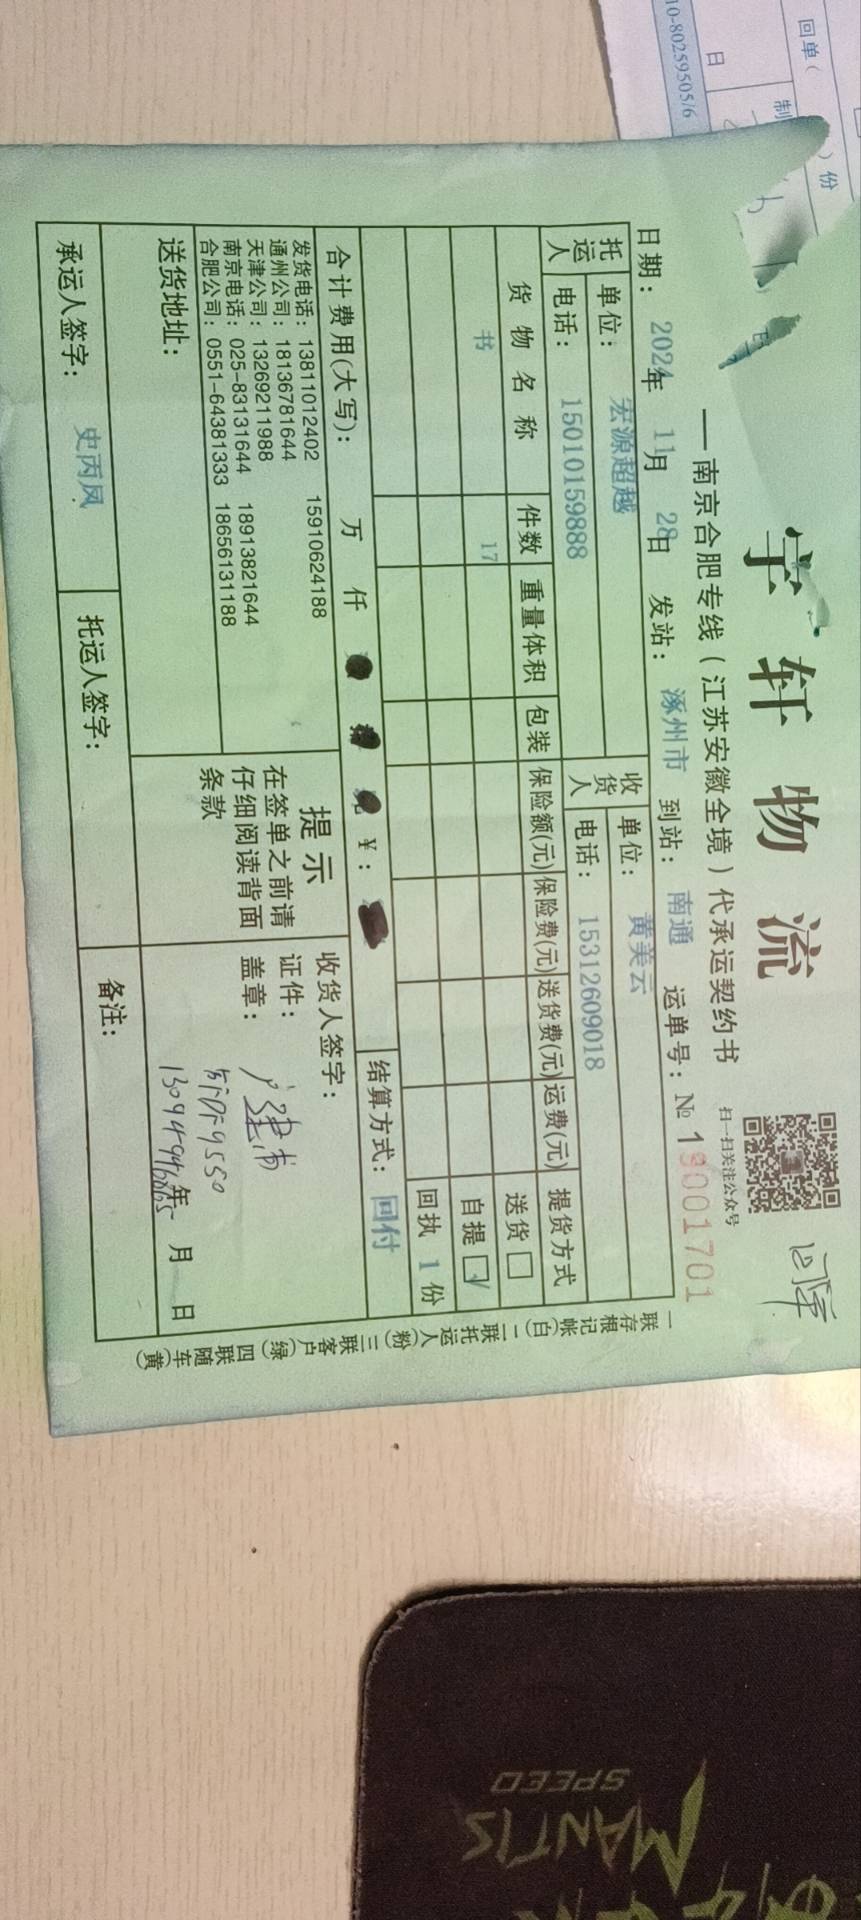 宇轩物流
扫一扫关注公众号
回单
——南京合肥专线(江苏安徽全境)代承运契约书
日期: 2024年 11月 28日 发站: 涿州市 到站: 南通 运单号: № 19001701
托运人 单位: 宏源超越 收货人 单位: 黄美云
电话: 15010159888 电话: 15312609018
货物名称 件数 重量体积 包装 保险额(元) 保险费(元) 送货费(元) 运费(元) 提货方式
书 17 送货□
自提☑
回执 1 份
合计费用(大写): 万 仟 ¥: 结算方式: 回付
发货电话: 13811012402 15910624188
通州公司: 18136781644
天津公司: 13269211988
南京电话: 025-83131644 18913821644
合肥公司: 0551-64381333 18656131188
提示
在签单之前请
仔细阅读背面
条款
收货人签字:
证件:
盖章:
年 月 日
送货地址:
承运人签字: 史丙凤 托运人签字: 备注:
一联存根记帐(白) 二联托运人(粉) 三联客户(绿) 四联随车(黄)
回单(
)份
日
制
10-80259505/6
MANTIS
SPEED